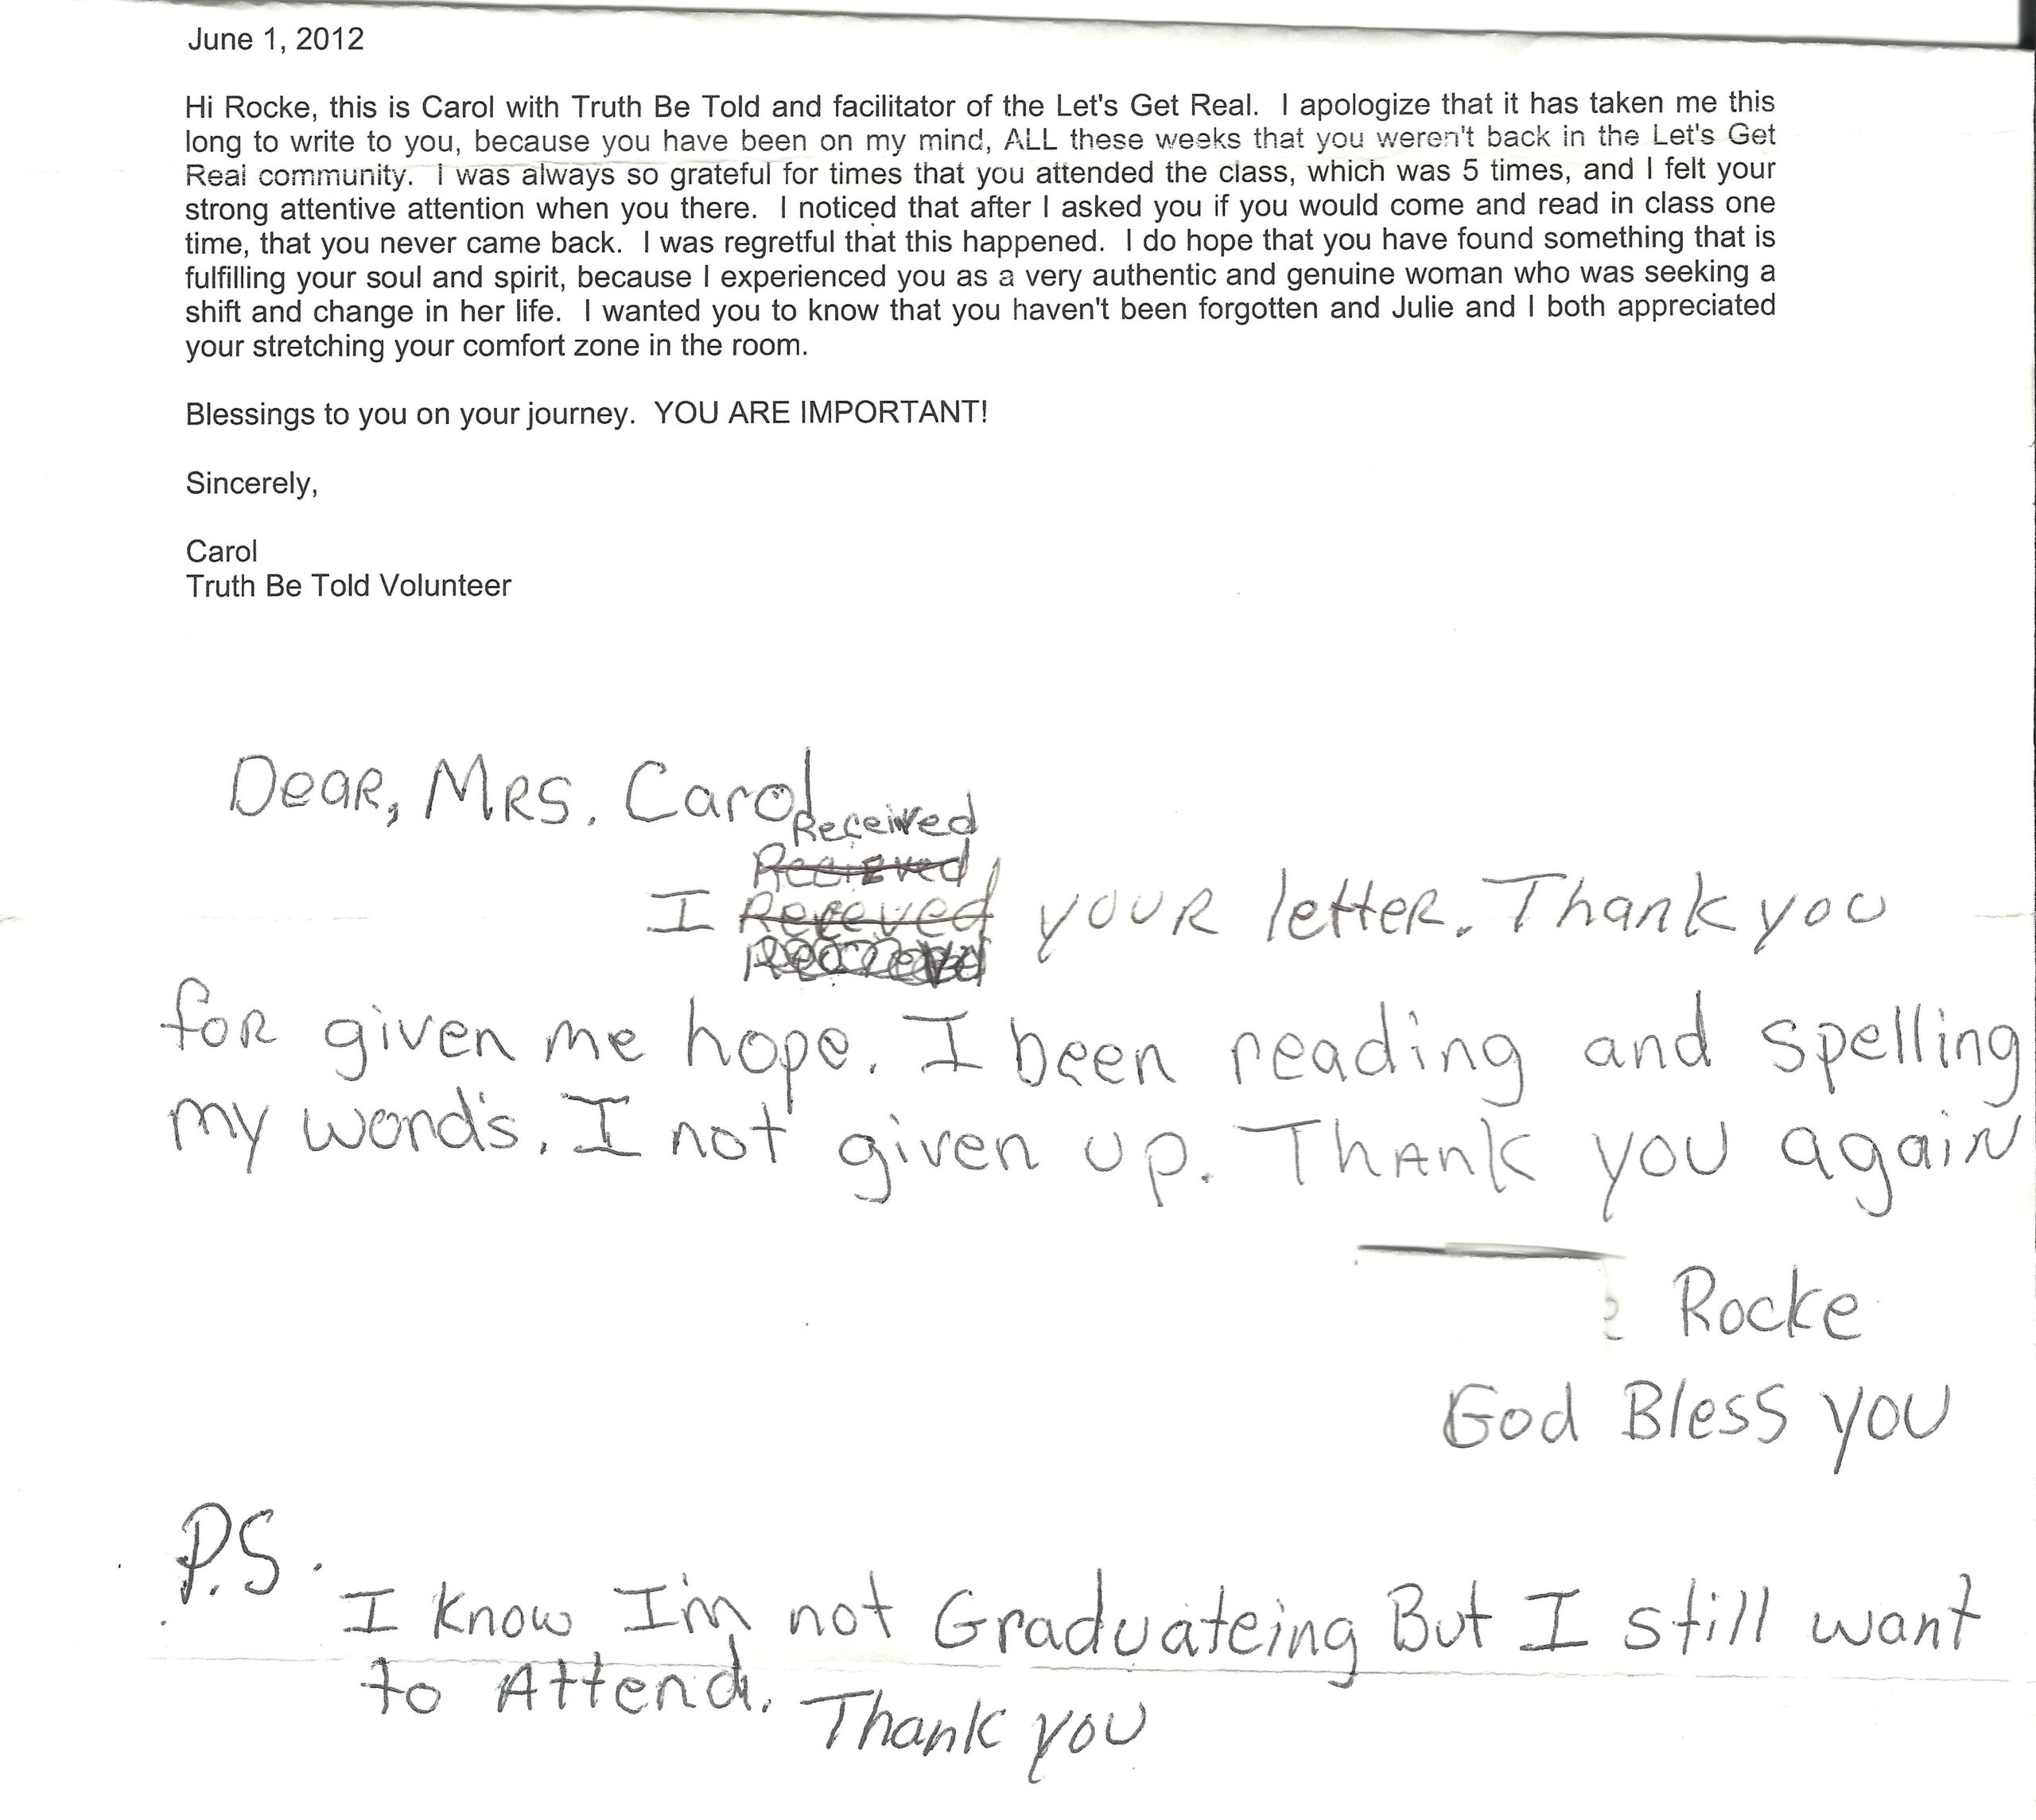 June 1, 2012
Hi Rocke, this is Carol with Truth Be Told and facilitator of the Let's Get Real.  I apologize that it has taken me this
long to write to you, because you have been on my mind, ALL these weeks that you weren't back in the Let's Get
Real community.  I was always so grateful for times that you attended the class, which was 5 times, and I felt your
strong attentive attention when you there.  I noticed that after I asked you if you would come and read in class one
time, that you never came back.  I was regretful that this happened.  I do hope that you have found something that is
fulfilling your soul and spirit, because I experienced you as a very authentic and genuine woman who was seeking a
shift and change in her life.  I wanted you to know that you haven't been forgotten and Julie and I both appreciated
your stretching your comfort zone in the room.
Blessings to you on your journey.  YOU ARE IMPORTANT!
Sincerely,
Carol
Truth Be Told Volunteer
Dear, Mrs. Carol
Received
Recieved
I Receved your letter. Thank you
for given me hope. I been reading and spelling
my word's. I not given up. Thank you again
Rocke
God Bless you
P.S.
I Know I'm not Graduateing But I still want
to Attend. Thank you